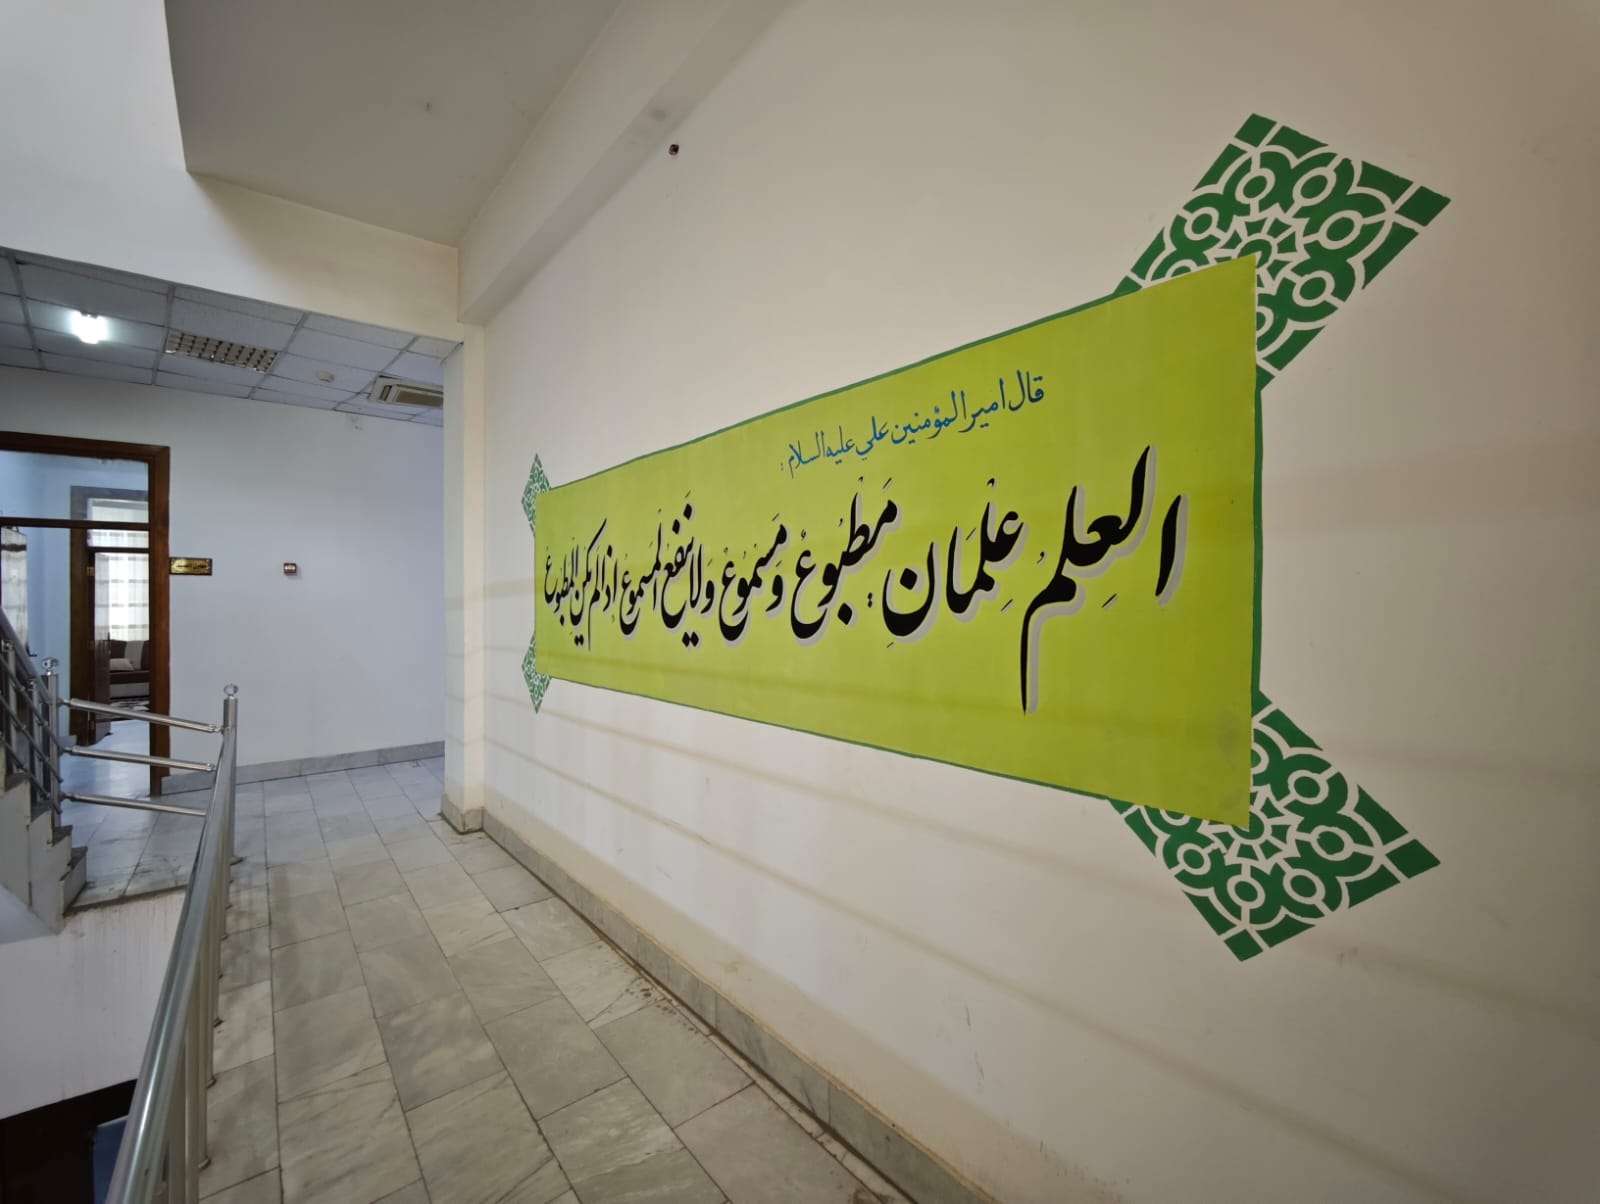 قال امیرالمؤمنین علي علیه السلام :
العِلمُ عِلْمَانِ مَطْبُوعٌ وَ مَسْمُوعٌ وَلا يَنفَعُ المَسموعُ اِذا لَم يَكُنِ المَطبوعُ